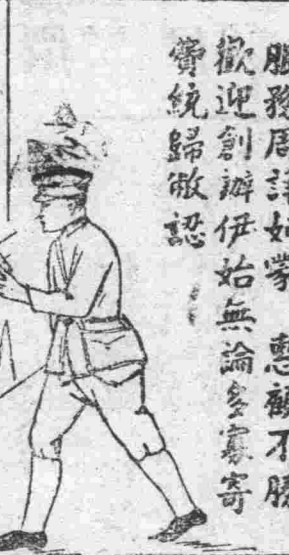 服務周詳如蒙　惠顧不勝
歡迎創辦伊始無論多寡寄
費統歸敝認